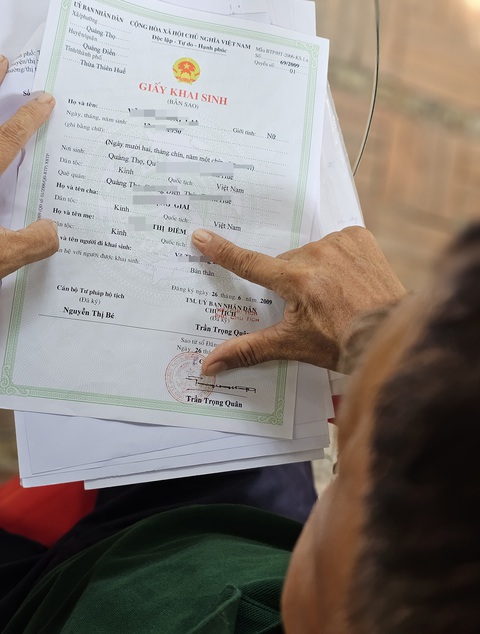 ỦY BAN NHÂN DÂN
Xã/phường
Quảng Thọ
Huyện/quận
Quảng Điền
Tỉnh/thành phố.
Thừa Thiên Huế
CỘNG HÒA XÃ HỘI CHỦ NGHĨA VIỆT NAM
Độc lập - Tự do - Hạnh phúc
Số 69/2009
Quyển số: 01
GIẤY KHAI SINH
(BẢN SAO)
Họ và tên:
Ngày, tháng, năm sinh
Giới tính: Nữ
(ghi bằng chữ):
(Ngày mười hai, tháng chín, năm một
Nơi sinh: Quảng Thọ,
Dân tộc: Kinh Quốc tịch: Việt Nam
Quê quán:
Họ và tên cha: GIAI
Dân tộc: Kinh Quốc tịch: Việt Nam
Họ và tên mẹ: THỊ DIỄM
tộc: Kinh Quốc tịch
và tên người đi khai sinh:
hệ với người được khai sinh: Bản thân
Đăng ký ngày 26 tháng 6 năm 2009
Cán bộ Tư pháp hộ tịch
(Đã ký)
Nguyễn Thị Bê
TM. UỶ BAN NHÂN DÂN
CHỦ TỊCH
(Đã ký)
Trần Trọng Quân
Sao từ sổ
Ngày 26
Trần Trọng Quân